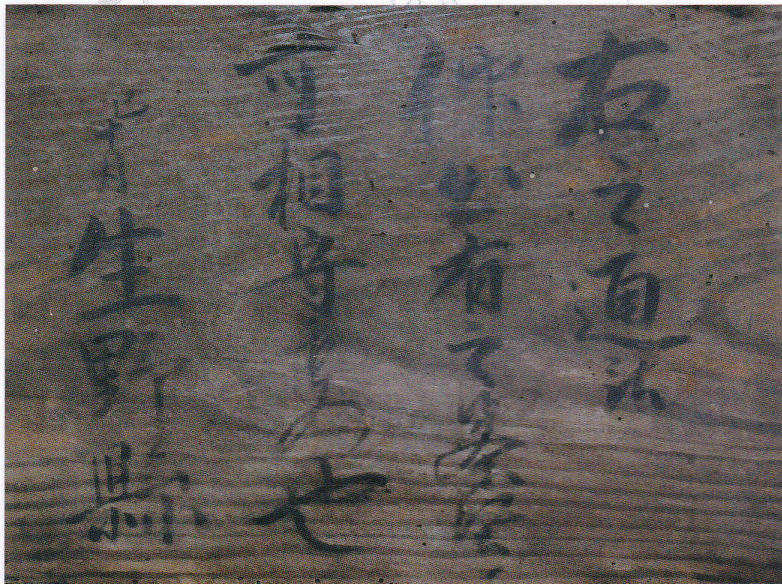 右之通被
仰出有之条堅
可相守もの也
月 生野縣